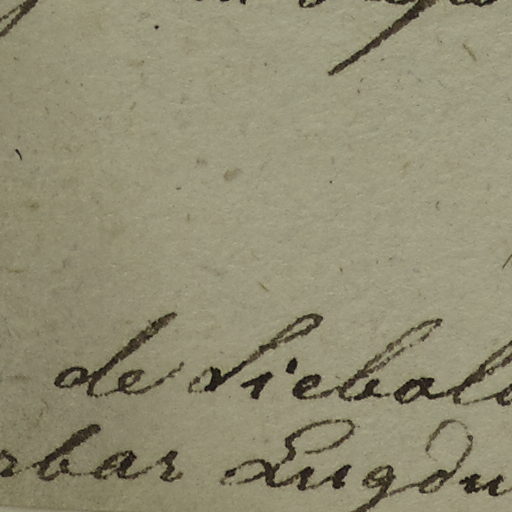 de Siebold
rbar Lugdu